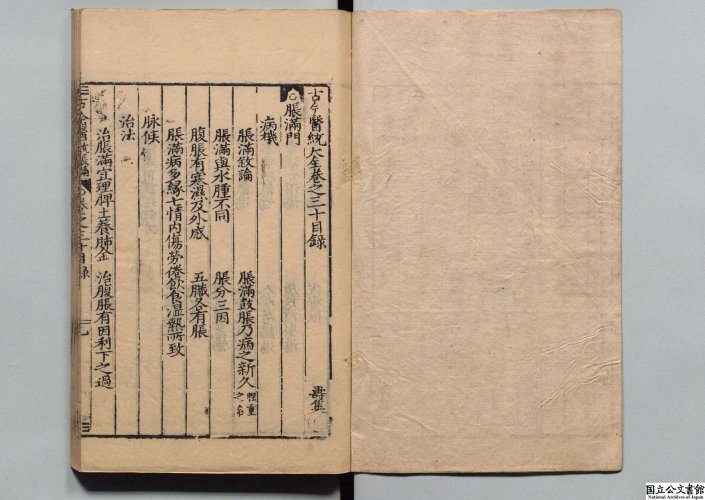 古今醫統大全卷之三十目録 壽集
脹滿門
病機
脹滿敘論 脹滿鼓脹乃病之新久輕重之名
脹滿與水腫不同 脹分三因
腹脹有寒濕及外感 五臟各有脹
脹滿病多緣七情內傷勞倦飲食濕熱所致
脉候
治法
治脹滿宜理脾土養肺金 治腹脹有因利下之過
国立公文書館
National Archives of Japan